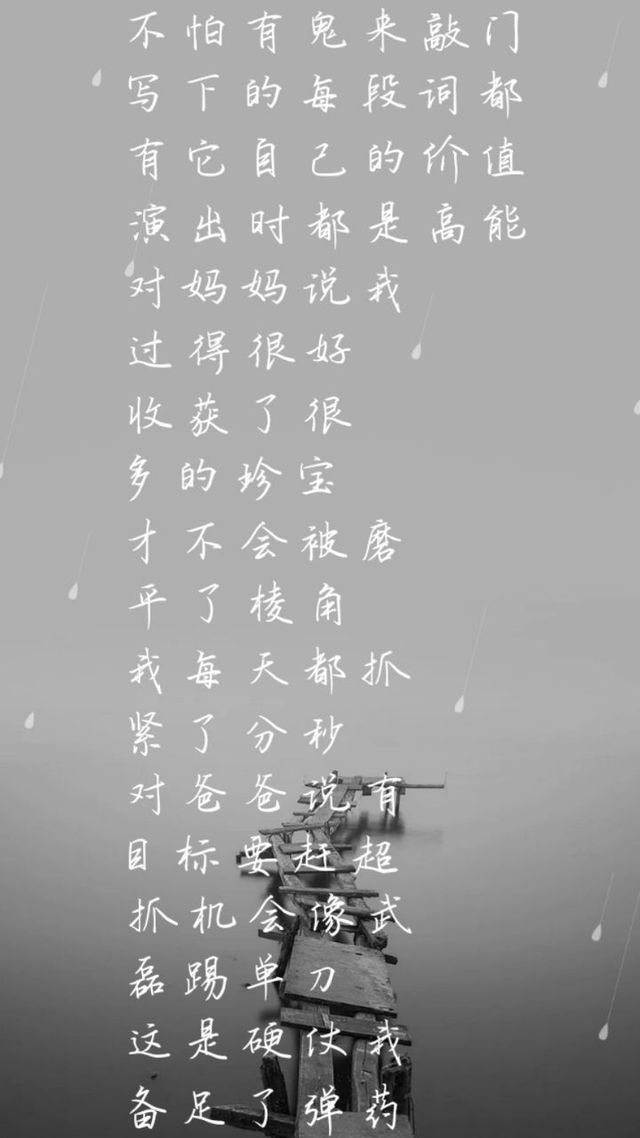 不怕有鬼来敲门
写下的每段词都
有它自己的价值
演出时都是高能
对妈妈说我
过得很好
收获了很
多的珍宝
才不会被磨
平了棱角
我每天都抓
紧了分秒
对爸爸说有
目标要赶超
抓机会像武
磊踢单刀
这是硬仗我
备足了弹药